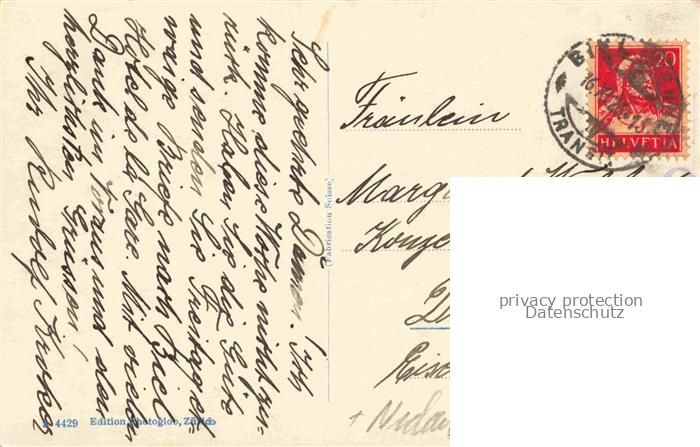 Sehr geehrte Damen! Ich
komme diese Woche nicht zu-
rück. Haben Sie die Güte
und senden Sie Freitag d-
weige Briefe nach Biel
Hotel de la Gare Mit vielen
Dank im Voraus und den
herzlichsten Grüssen,
Ihr Rudolf
(Fabrication Suisse)
4429 Edition Photoglob, Zürich
BIEL
TRAN
20
HELVETIA
Fräulein
Marg
Konze
Eisc
+
privacy protection
Datenschutz